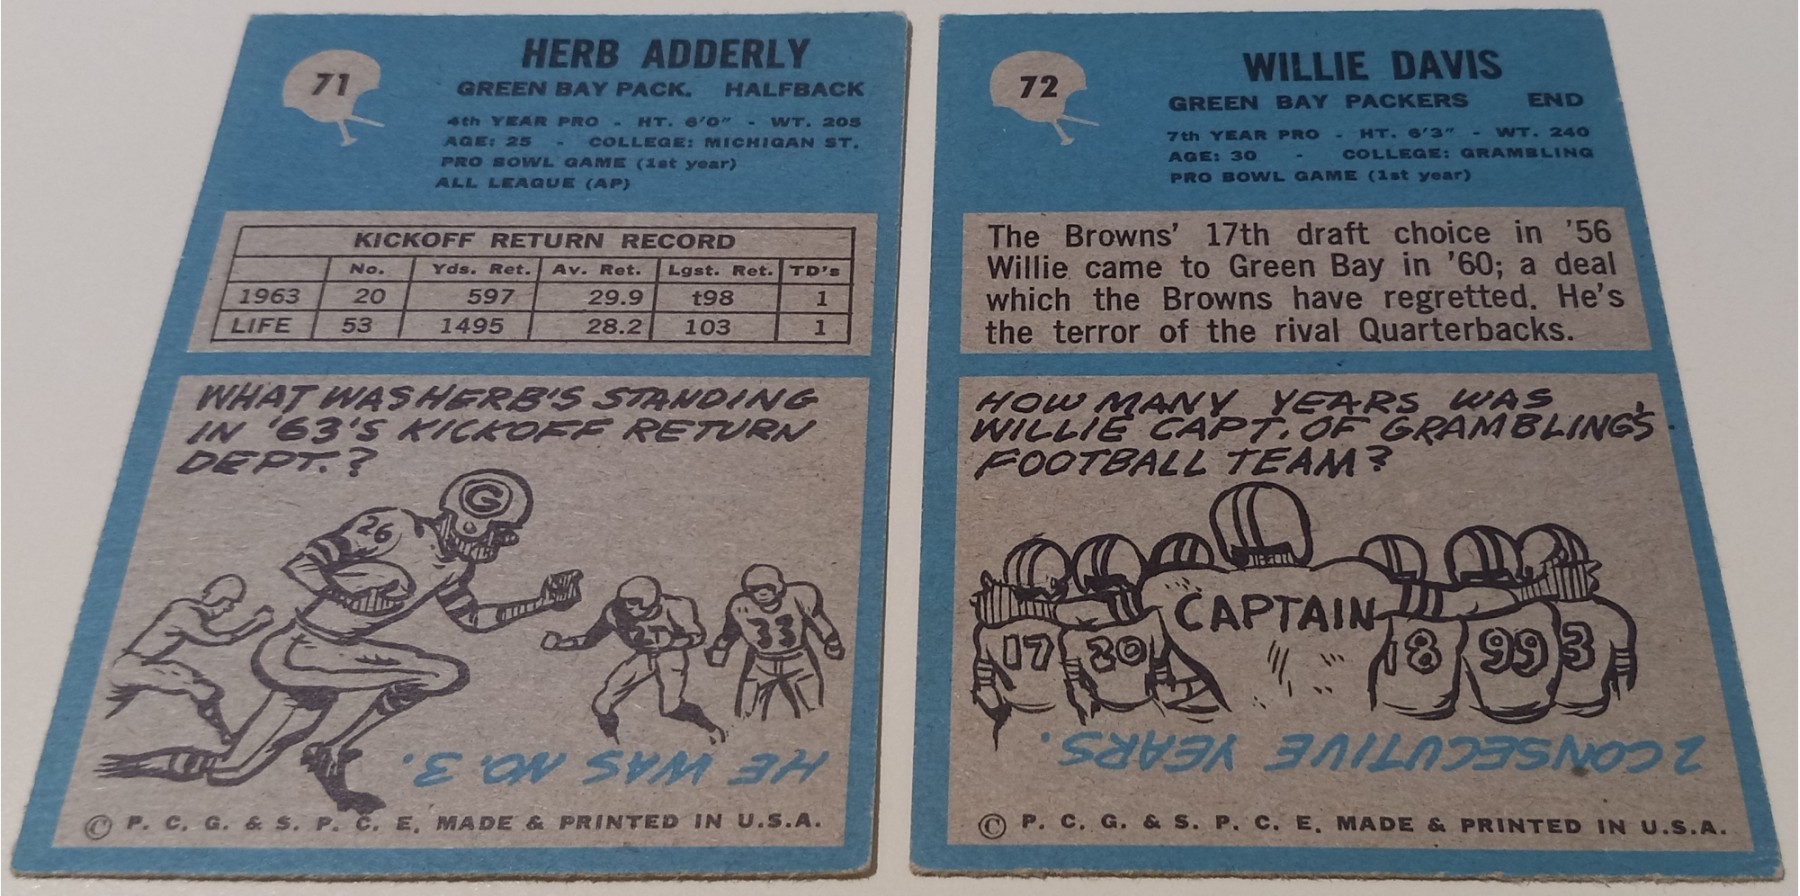 71
HERB ADDERLY
GREEN BAY PACK. HALFBACK
4th YEAR PRO - HT. 6'0" - WT. 205
AGE: 25 - COLLEGE: MICHIGAN ST.
PRO BOWL GAME (1st year)
ALL LEAGUE (AP)
KICKOFF RETURN RECORD
No. Yds. Ret. Av. Ret. Lgst. Ret. TD's
1963 20 597 29.9 t98 1
LIFE 53 1495 28.2 103 1
WHAT WAS HERB'S STANDING
IN '63'S KICKOFF RETURN
DEPT.?
G
26
27
33
HE WAS NO. 3.
© P. C. G. & S. P. C. E. MADE & PRINTED IN U.S.A.
72
WILLIE DAVIS
GREEN BAY PACKERS END
7th YEAR PRO - HT. 6'3" - WT. 240
AGE: 30 - COLLEGE: GRAMBLING
PRO BOWL GAME (1st year)
The Browns' 17th draft choice in '56
Willie came to Green Bay in '60; a deal
which the Browns have regretted. He's
the terror of the rival Quarterbacks.
HOW MANY YEARS WAS
WILLIE CAPT. OF GRAMBLING'S
FOOTBALL TEAM?
CAPTAIN
17 20 18 99 3
2 CONSECUTIVE YEARS.
© P. C. G. & S. P. C. E. MADE & PRINTED IN U.S.A.